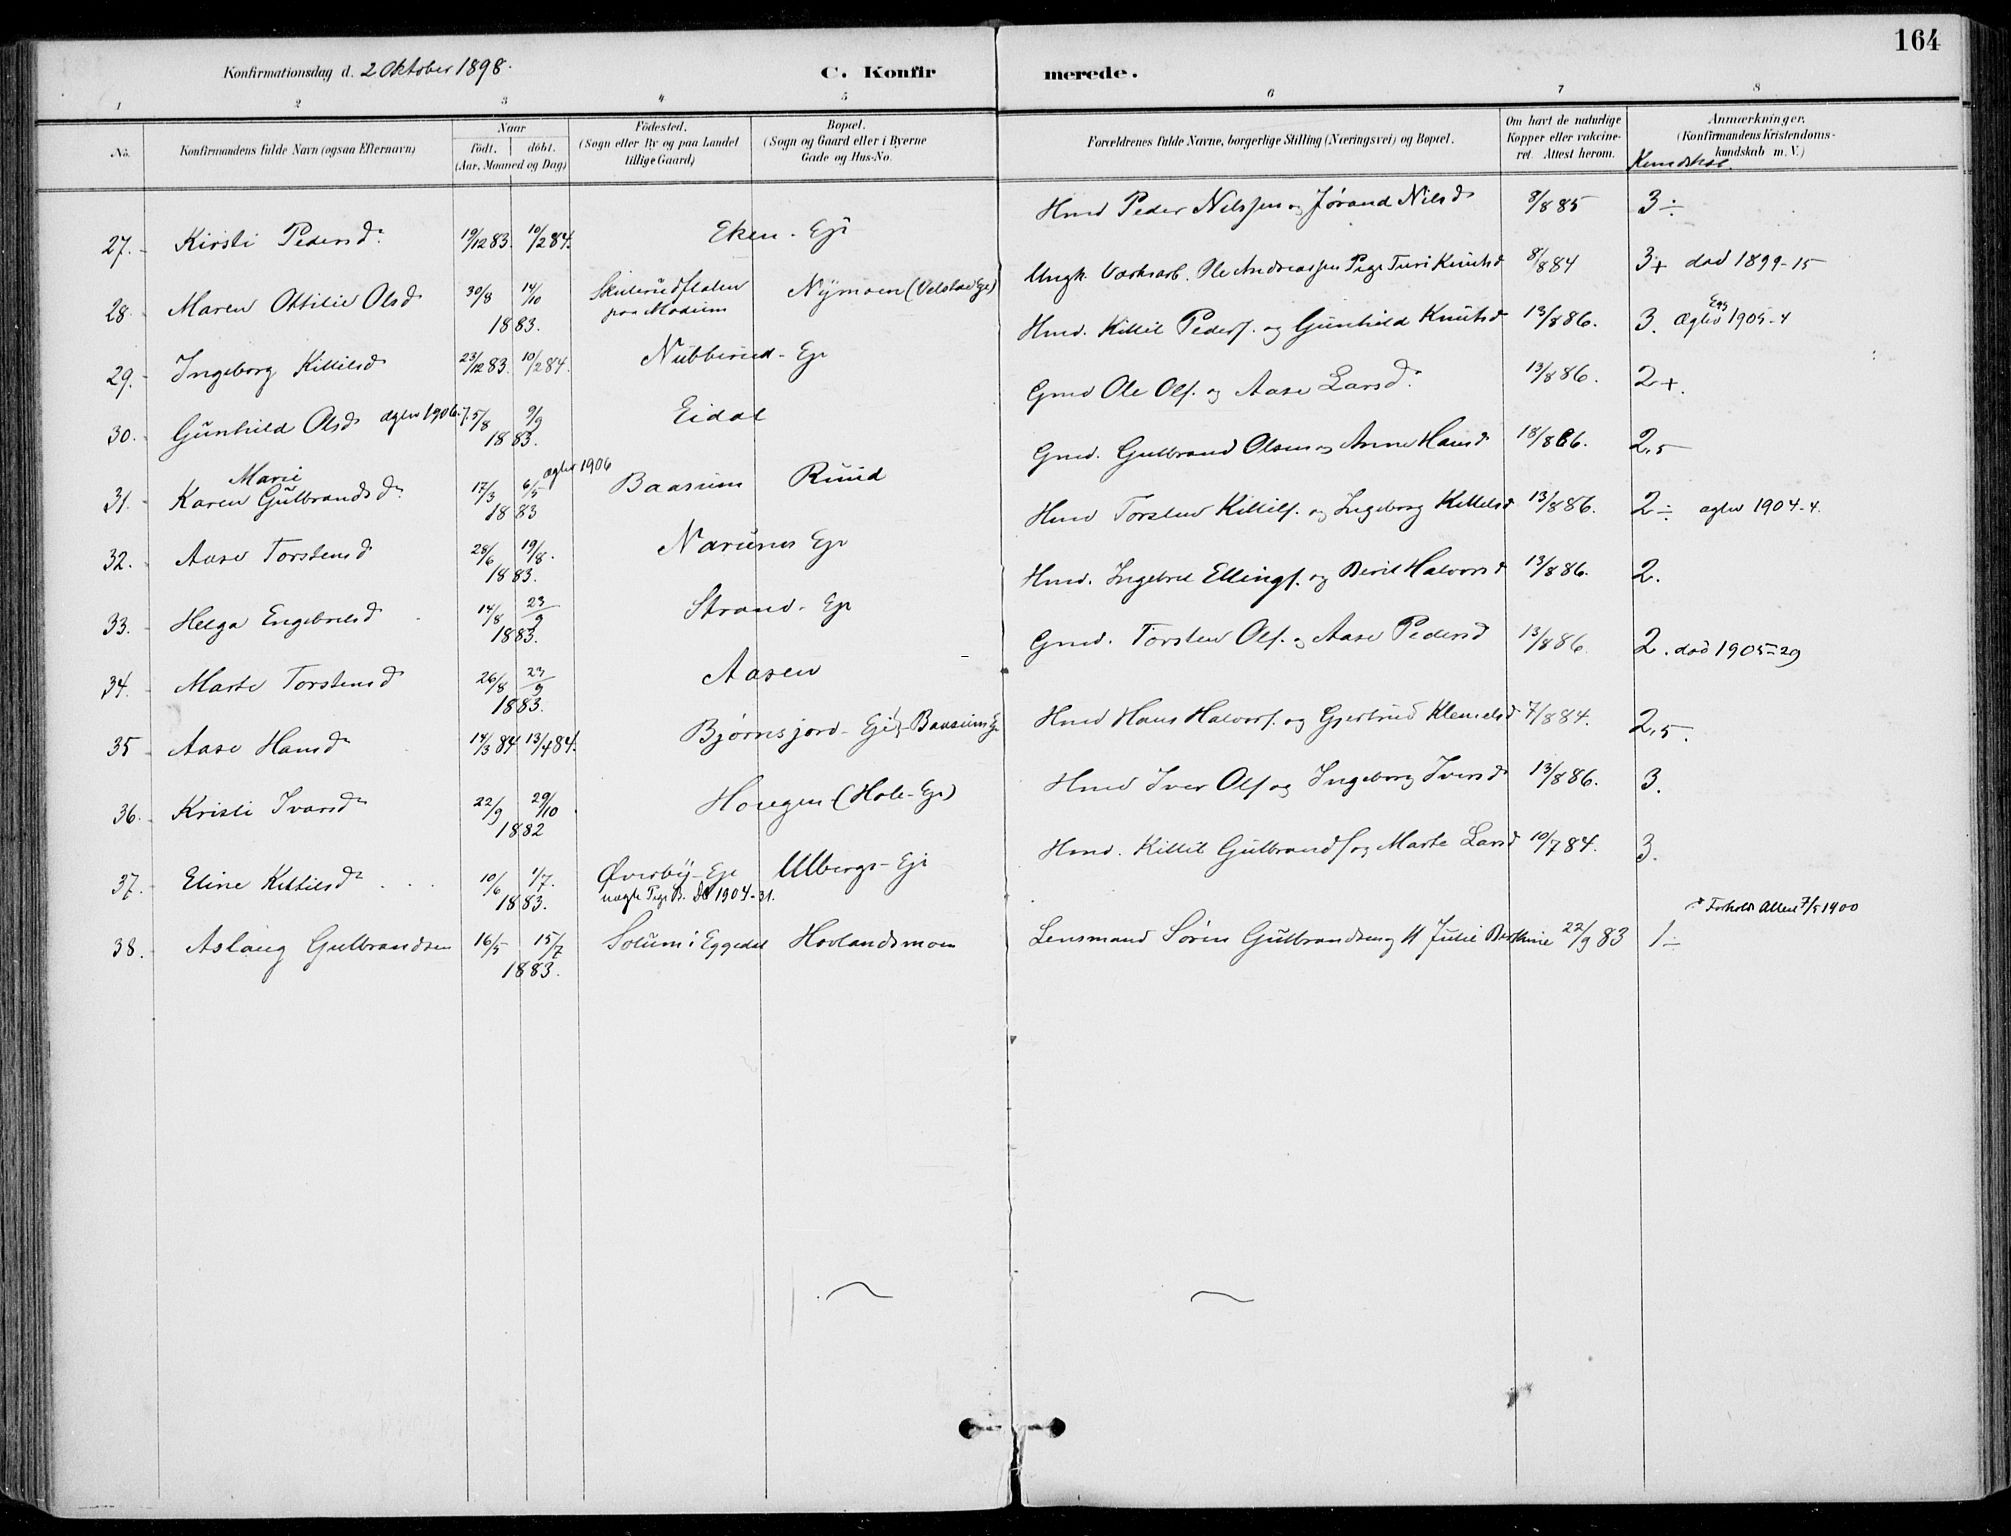 164
Konfirmationsdag d. 2 Oktober 1898.
C. Konfirmerede.
1 2 3 4 5 6 7 8
No. Konfirmandens fulde Navn (ogsaa Efternavn) Naar födt. döbt. (Aar, Maaned og Dag) Födested. (Sogn eller By og paa Landet tillige Gaard) Bopæl. (Sogn og Gaard eller i Byerne Gade og Hus-No. Forældrenes fulde Navne, borgerlige Stilling (Næringsvei) og Bopæl. Om havt de naturlige Kopper eller vaccineret. Attest herom. Anmærkninger. (Konfirmandens Kristendomskundskab m. V.)
Kundskab.
27. Kirsti Pedersd. 19/12 83. 10/2 84. Eken - Eje Hmd Peder Nilssen og Jørand Nilsd 8/8 85 3 ÷
28. Maren Ottilie Olsd 30/8 14/10 1883. Skuterudflaten paa Modum Nymoen (Velstad Eje) Ungk. Værksarb. Ole Andreassen Pige Turi Knutsd 8/8 84 3+ død 1899-15
29. Ingeborg Kittilsd 23/12 83. 10/2 84. Nubberud - Eje Hmd. Kittil Peders. og Gunhild Knutsd 13/8 86. 3. Ægtev 1905-4
30. Gunhild Olsd ægtev 1906-7. 5/8 9/9 1883. Eidal Gmd Ole Ols. og Aase Larsd. 13/8 86. 2+.
31. Karen Marie Gulbrandsd. 17/3 6/5 1883 ægtev 1906 Baasum Ruud Gmd. Gulbrand Olsen og Anne Hansd 18/8 86. 2,5
32. Aase Torstensd 28/6 19/8. 1883. Narums Eje Hmd Torsten Kittils. og Ingeborg Kittilsd 13/8 86. 2 ÷ ægtev 1904-4.
33. Helga Engebretsd 14/8 23/9 1883. Strand - Eje Hmd. Ingebret Ellings. og Berit Halvorsd 13/8 86. 2.
34. Marte Torstensd 26/8 23/9 1883. Aasen Gmd. Torsten Ols. og Aase Pedersd 13/8 86. 2. død 1905-29
35 Aase Hansd 14/3 84 13/4 84. Bjørnsjord - Eje Baasum Eje Hmd Hans Halvors. og Gjertrud Klemetsd 7/8 84. 2,5.
36. Kristi Ivarsd 22/9 29/10 1882 Hougen (Hole - Eje) Hmd Iver Ols og Ingeborg Iversd 13/8 86. 3.
37. Eline Kittilsd 10/6 1/7. 1883. Øverby - Eje Ulbergs - Eje Hmd. Kittil Gulbrands og Marte Larsd 10/7 84. 3.
1904-31.
38. Aslaug Gulbrandsen 16/5 15/7 1883. Solum i Eggedal Hovlandsmoen Lensmand Søren Gulbrandsen og H Julie Berthine 22/9 83 1 ÷
Forhold. Attest 7/5 1900